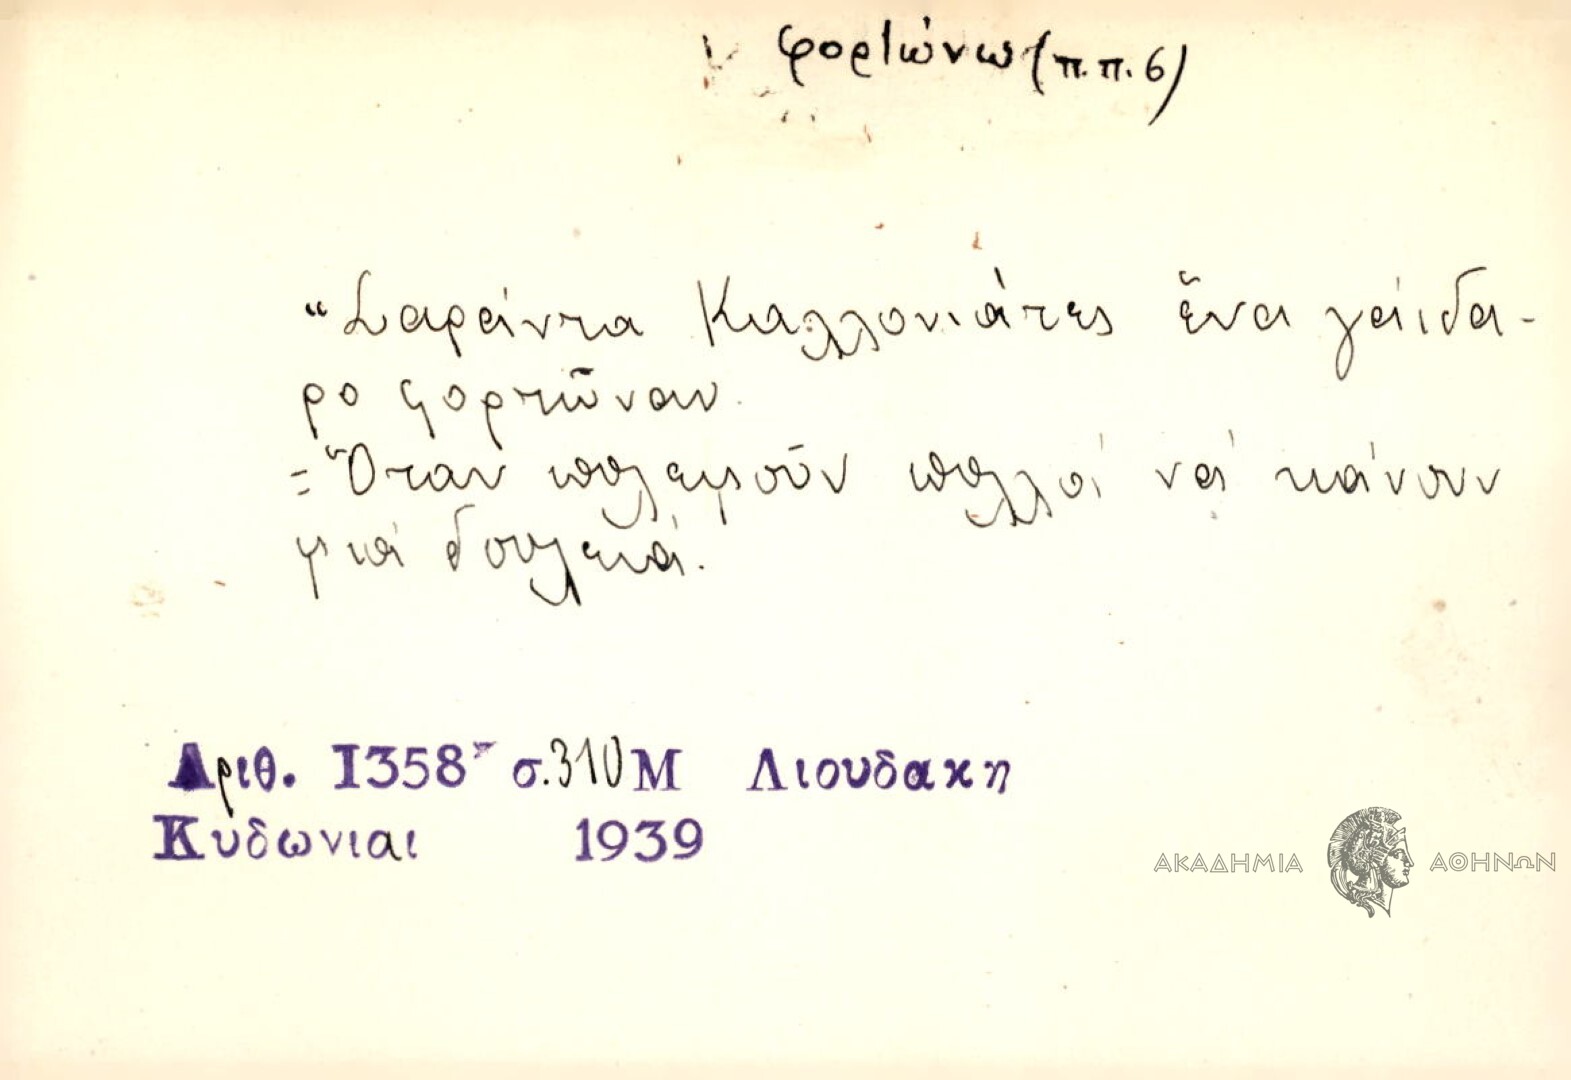 φορτώνω (π.π. 6)
"Σαράντα Καλλονιάτες ἕνα γάιδα-
ρο φορτῶναν.
=Ὅταν πολεμοῦν πολλοί νά κάνουν
μιά δουλειά.
Αριθ. 1358 σ. 310 Μ Λιουδακη
Κυδωνιαι 1939
ΑΚΑΔΗΜΙΑ ΑΘΗΝΩΝ